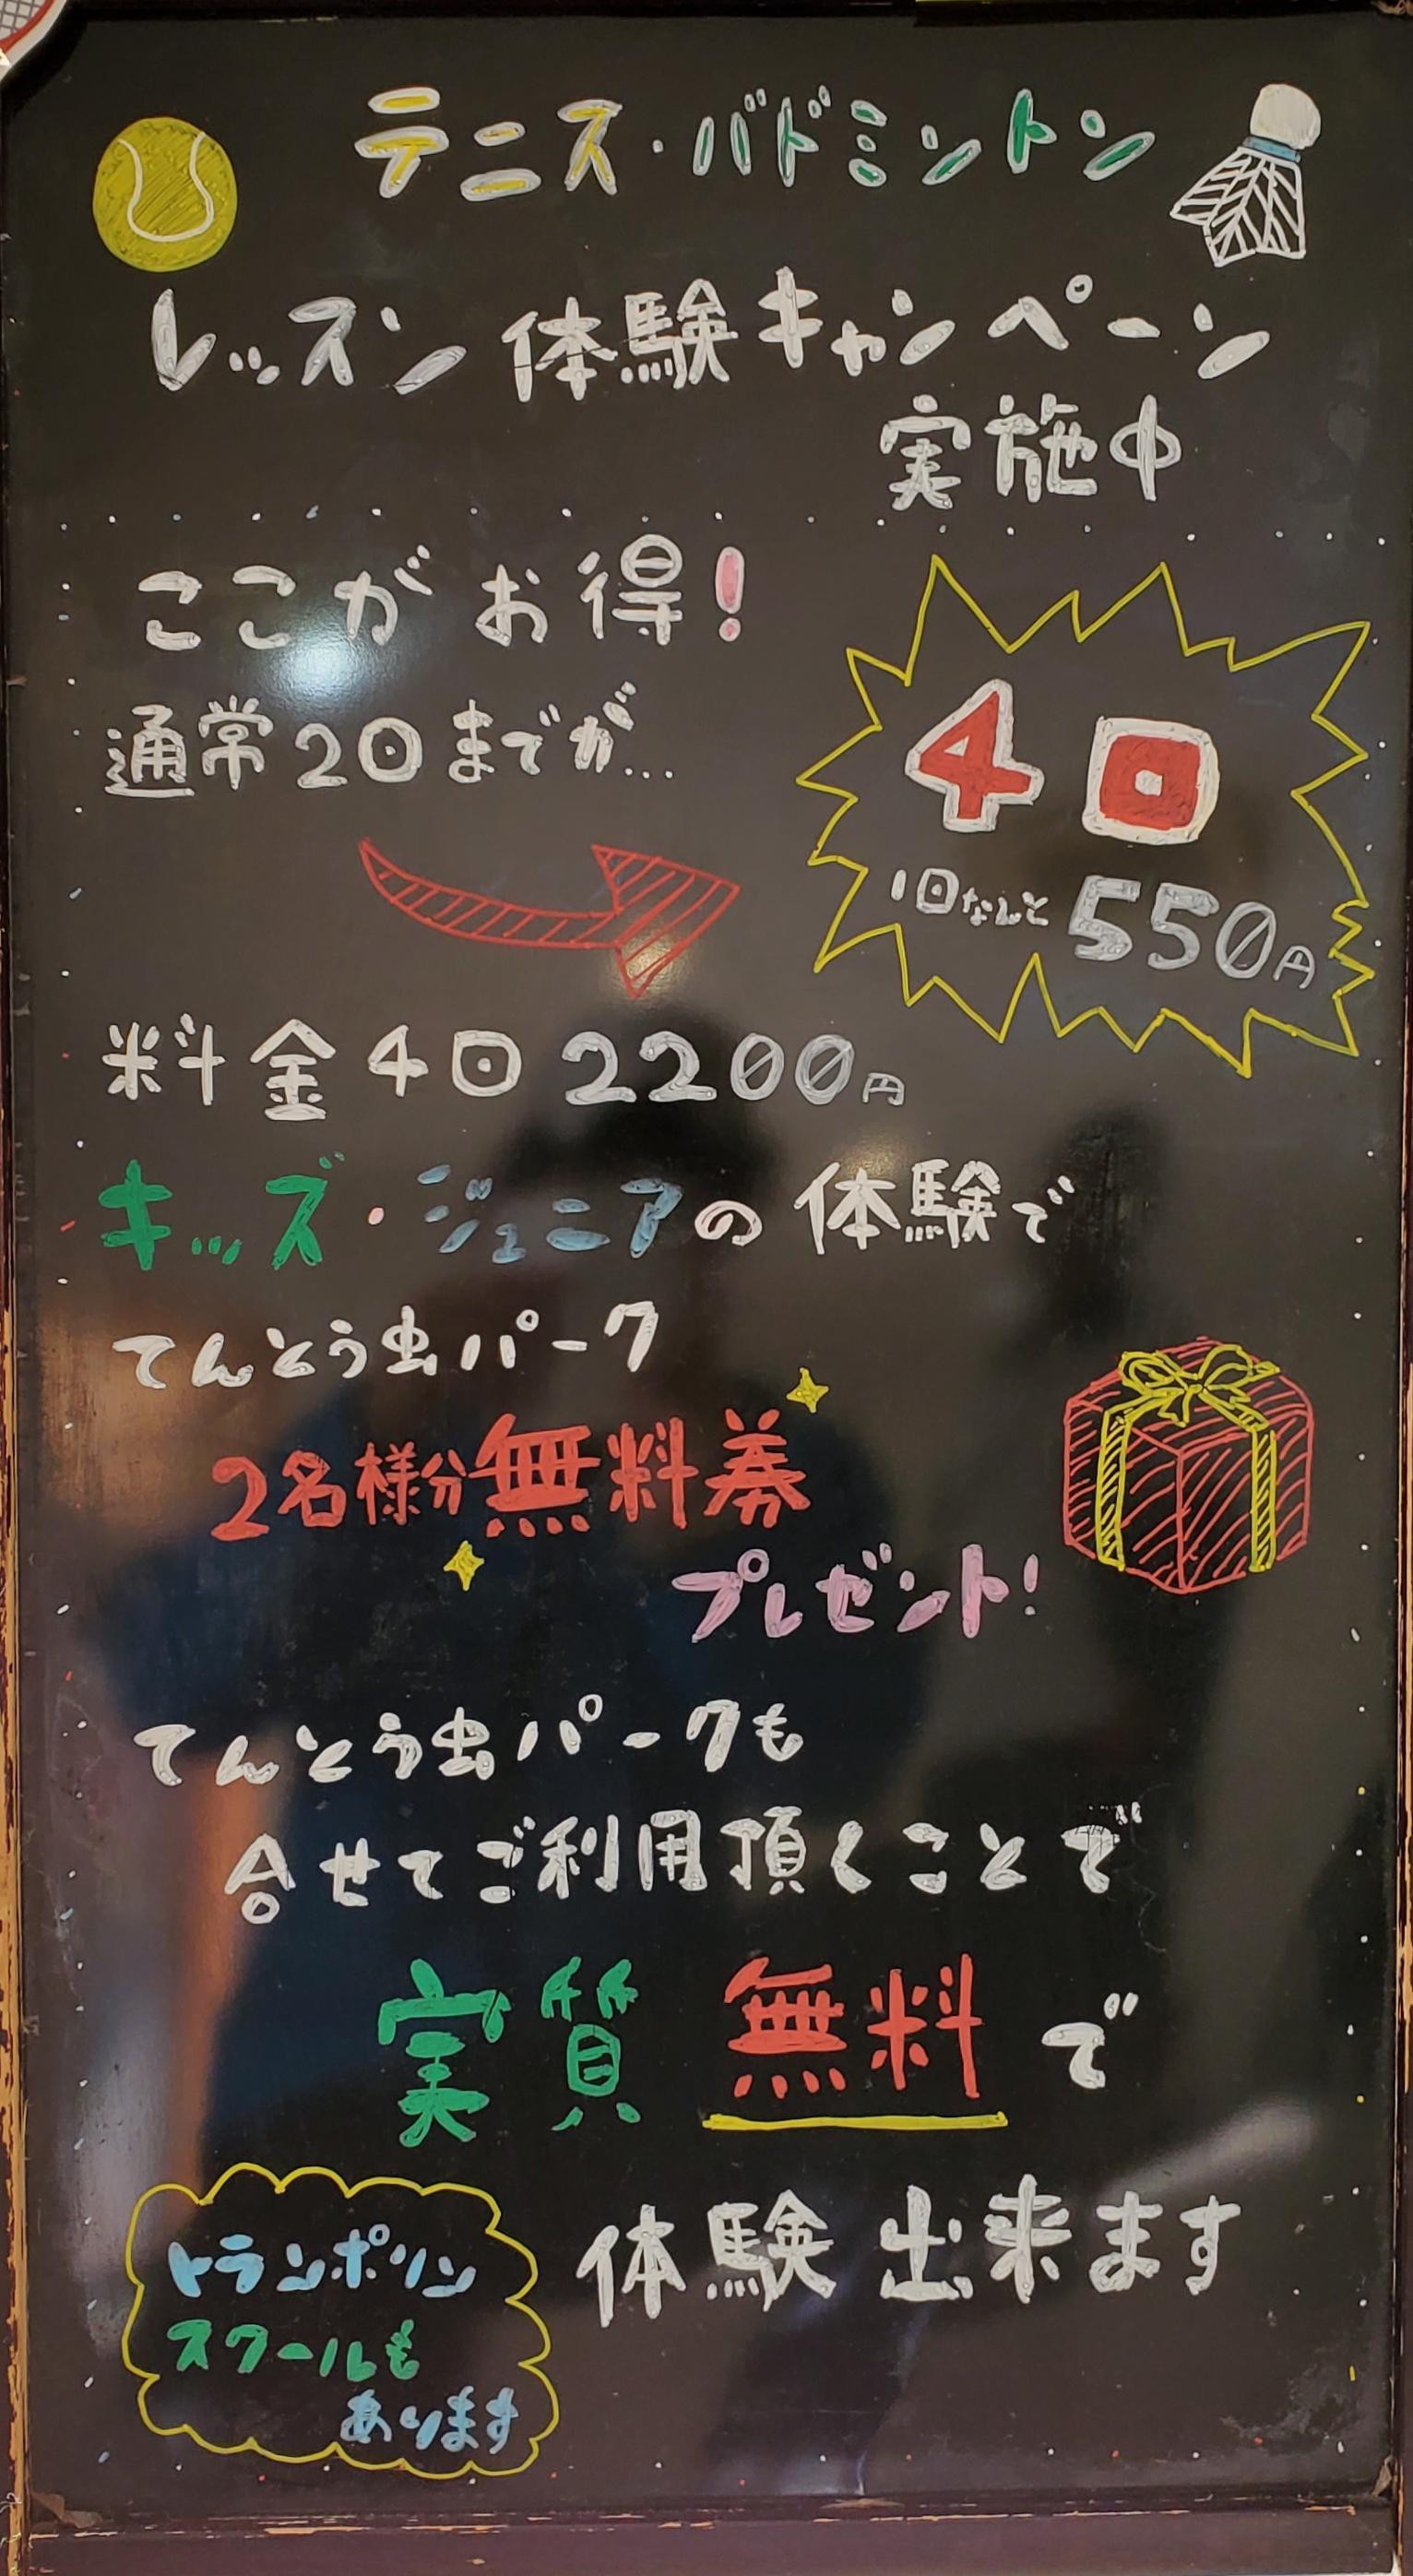 テニス・バドミントン
レッスン体験キャンペーン
実施中
ここがお得!
通常2回までが...
4回
1回なんと550円
料金4回2200円
キッズ・ジュニアの体験で
てんとう虫パーク
2名様分無料券
プレゼント!
てんとう虫パークも
合せてご利用頂くことで
実質無料で
体験出来ます
トランポリン
スクールも
あります